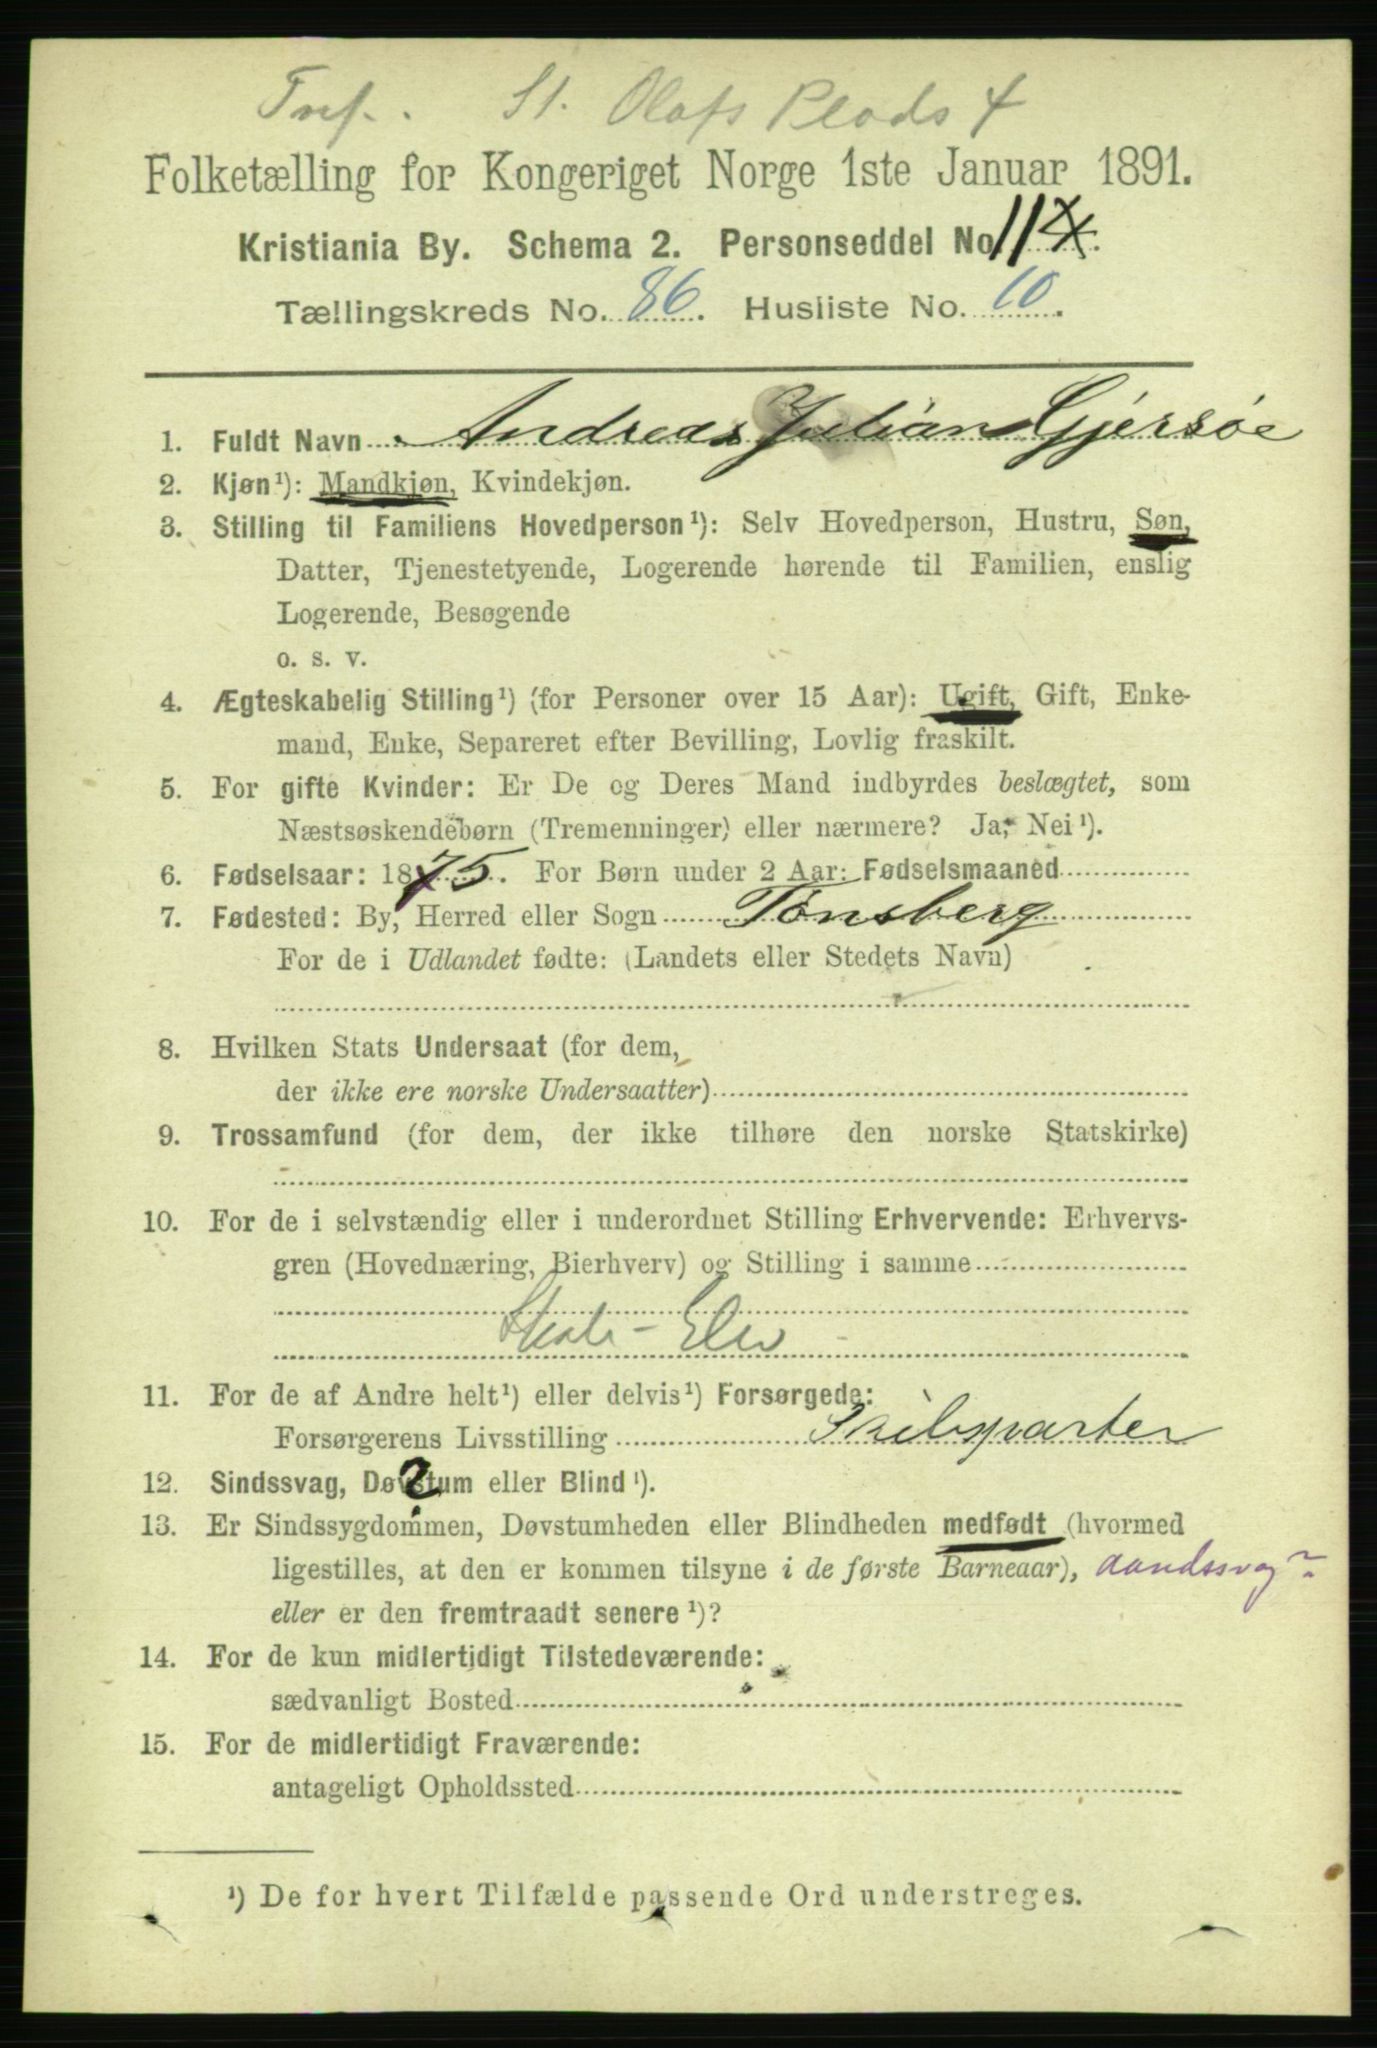 St. Olafs Plads 4
Folketælling for Kongeriget Norge 1ste Januar 1891.
Kristiania By. Schema 2. Personseddel No 11
Tællingskreds No. 86. Husliste No. 10.
1. Fuldt Navn Andreas Julian Gjersøe
2. Kjøn¹): Mandkjøn, Kvindekjøn.
3. Stilling til Familiens Hovedperson¹): Selv Hovedperson, Hustru, Søn,
Datter, Tjenestetyende, Logerende hørende til Familien, enslig
Logerende, Besøgende
o. s. v.
4. Ægteskabelig Stilling¹) (for Personer over 15 Aar): Ugift, Gift, Enke-
mand, Enke, Separeret efter Bevilling, Lovlig fraskilt.
5. For gifte Kvinder: Er De og Deres Mand indbyrdes beslægtet, som
Næstsøskendebørn (Tremenninger) eller nærmere? Ja, Nei¹).
6. Fødselsaar: 1875. For Børn under 2 Aar: Fødselsmaaned
7. Fødested: By, Herred eller Sogn Tønsberg
For de i Udlandet fødte: (Landets eller Stedets Navn)
8. Hvilken Stats Undersaat (for dem,
der ikke ere norske Undersaatter)
9. Trossamfund (for dem, der ikke tilhøre den norske Statskirke)
10. For de i selvstændig eller i underordnet Stilling Erhvervende: Erhvervs-
gren (Hovednæring, Bierhverv) og Stilling i samme
Skole-Elev
11. For de af Andre helt¹) eller delvis¹) Forsørgede:
Forsørgerens Livsstilling Skibsparter
12. Sindssvag, Døvstum eller Blind¹). ?
13. Er Sindssygdommen, Døvstumheden eller Blindheden medfødt (hvormed
ligestilles, at den er kommen tilsyne i de første Barneaar), aandssvag?
eller er den fremtraadt senere¹)?
14. For de kun midlertidigt Tilstedeværende:
sædvanligt Bosted
15. For de midlertidigt Fraværende:
antageligt Opholdssted
¹) De for hvert Tilfælde passende Ord understreges.